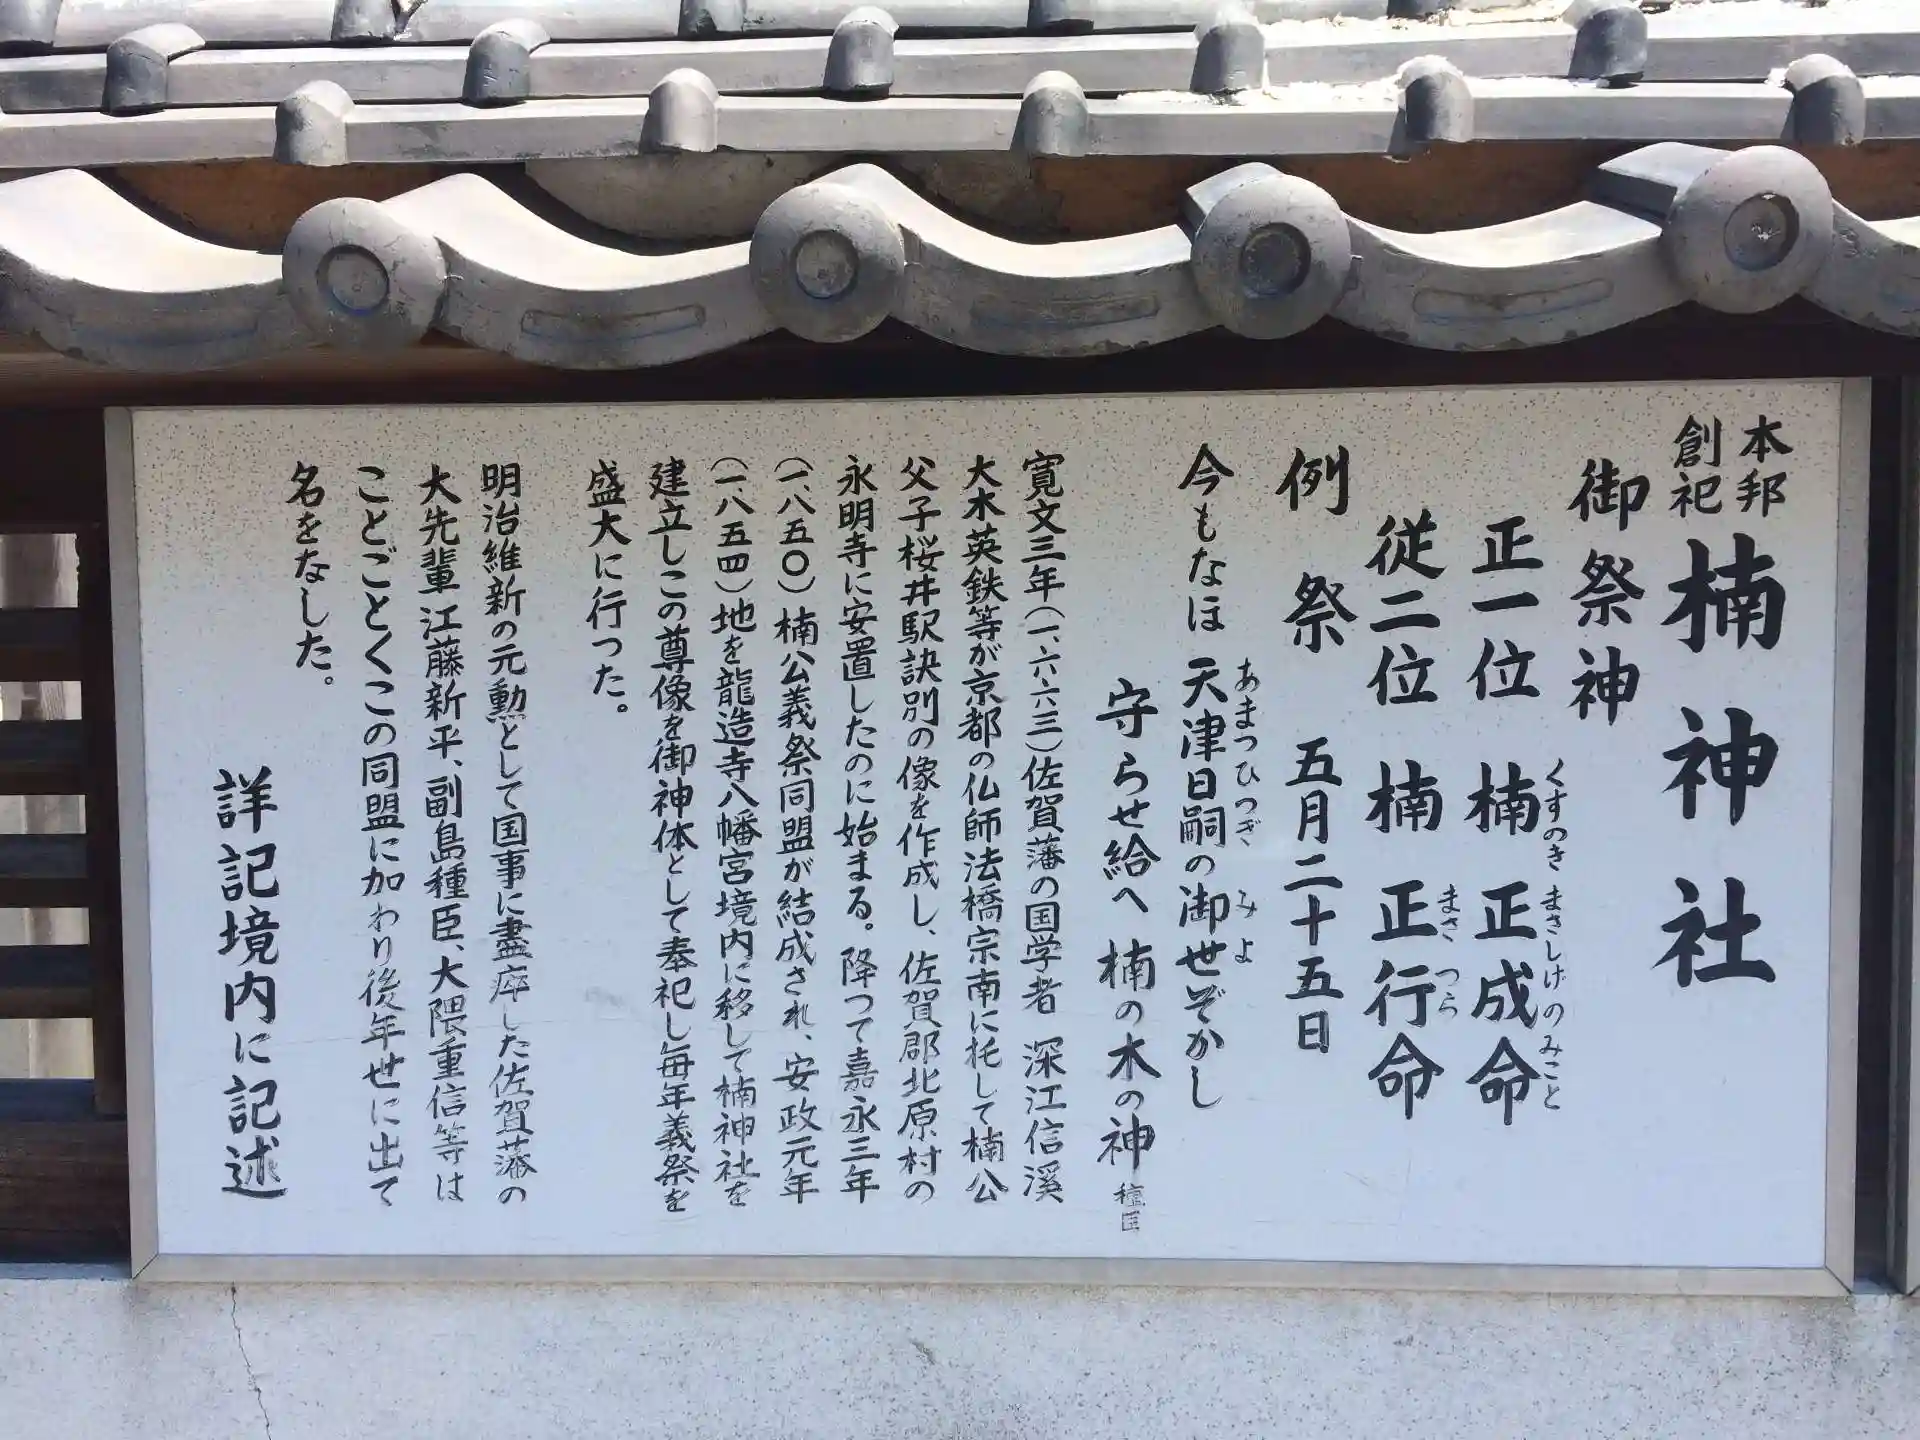 本邦
創祀
楠神社
御祭神
正一位 楠 正成命
くすのき まさしげのみこと
従二位 楠 正行命
まさ つら
例祭 五月二十五日
今もなほ 天津日嗣の御世ぞかし
あまつひつぎ みよ
守らせ給へ 楠の木の神 種臣
寛文三年(一、六六三)佐賀藩の国学者 深江信溪
大木英鉄等が京都の仏師法橋宗南に托して楠公
父子桜井駅訣別の像を作成し、佐賀郡北原村の
永明寺に安置したのに始まる。降つて嘉永三年
(一、八五〇)楠公義祭同盟が結成され、安政元年
(一八五四)地を龍造寺八幡宮境内に移して楠神社を
建立しこの尊像を御神体として奉祀し毎年義祭を
盛大に行つた。
明治維新の元勲として国事に盡瘁した佐賀藩の
大先輩江藤新平、副島種臣、大隈重信等は
ことごとくこの同盟に加わり後年世に出て
名をなした。
詳記境内に記述